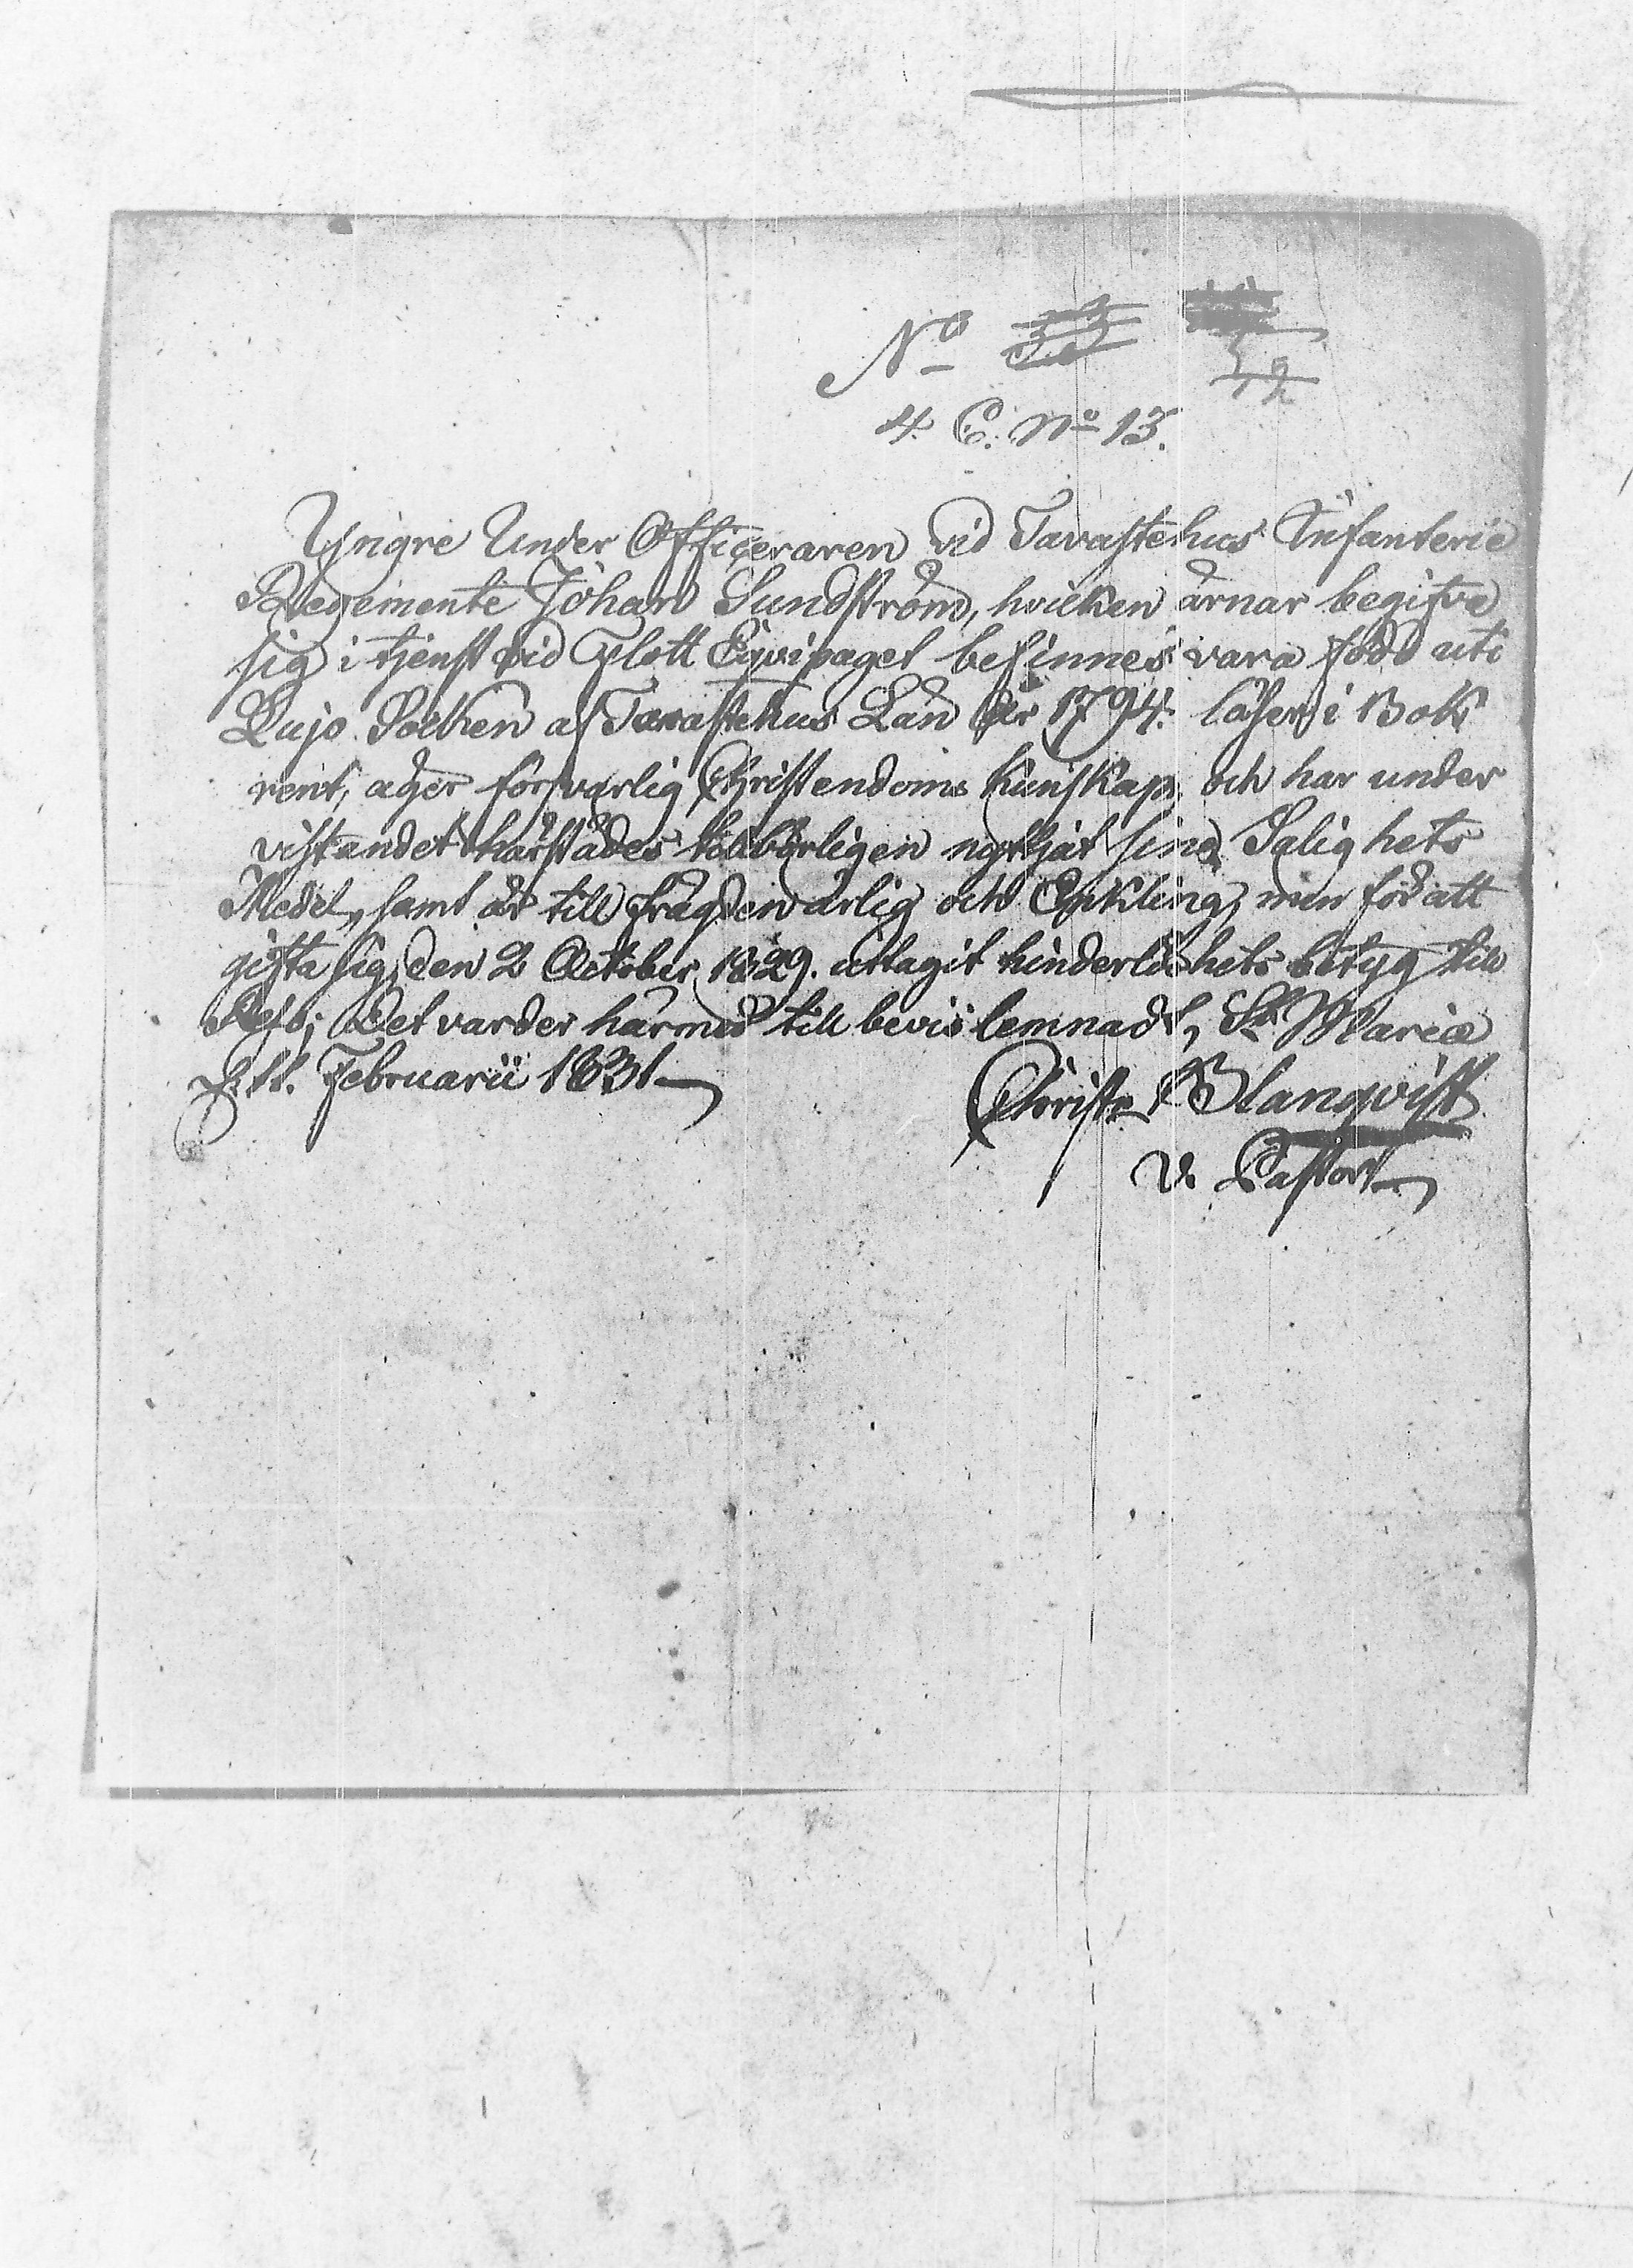 No
4 C. No 13.
Yngre Under Officeraren vid Tavastehus Infanterie
Regemente Johan Sundström, hvilken ärnar begifva
sig i tjenst vid Flott Equipaget befinnes vara född uti
Lojo Socken af Tavastehus Län år 1794. läser i Bok
rent, äger försvarlig Christendoms kunskap och har under
vistandet härstädes tillbörligen nyttjat sina Salighets
Medel, samt är till frägden ärlig och Enkling, men för att
gifta sig, den 2 October 1829. uttagit hinderlöshets betyg till
det varder härmed till bevis lemnadt, St Mariæ
d. 11. Februarii 1831
Christr Blanqvist
V. Pastor